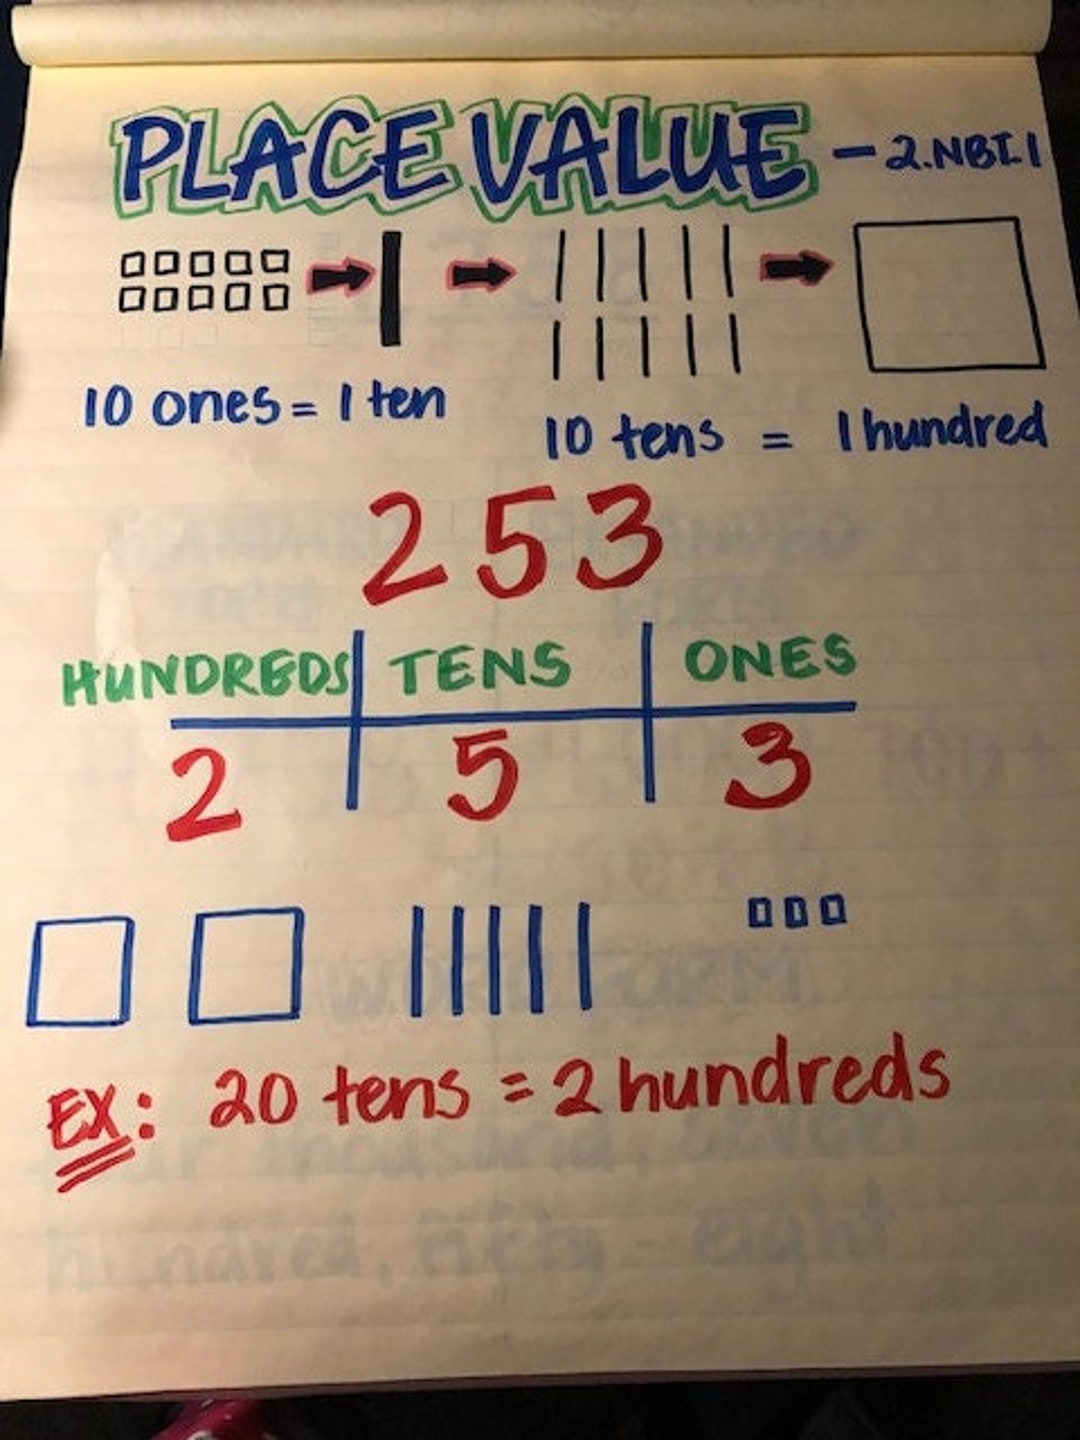 PLACE VALUE - 2.NBT.1
10 ones = 1 ten
10 tens = 1 hundred
253
HUNDREDS TENS ONES
2 5 3
EX: 20 tens = 2 hundreds
hundred, fifty - eight